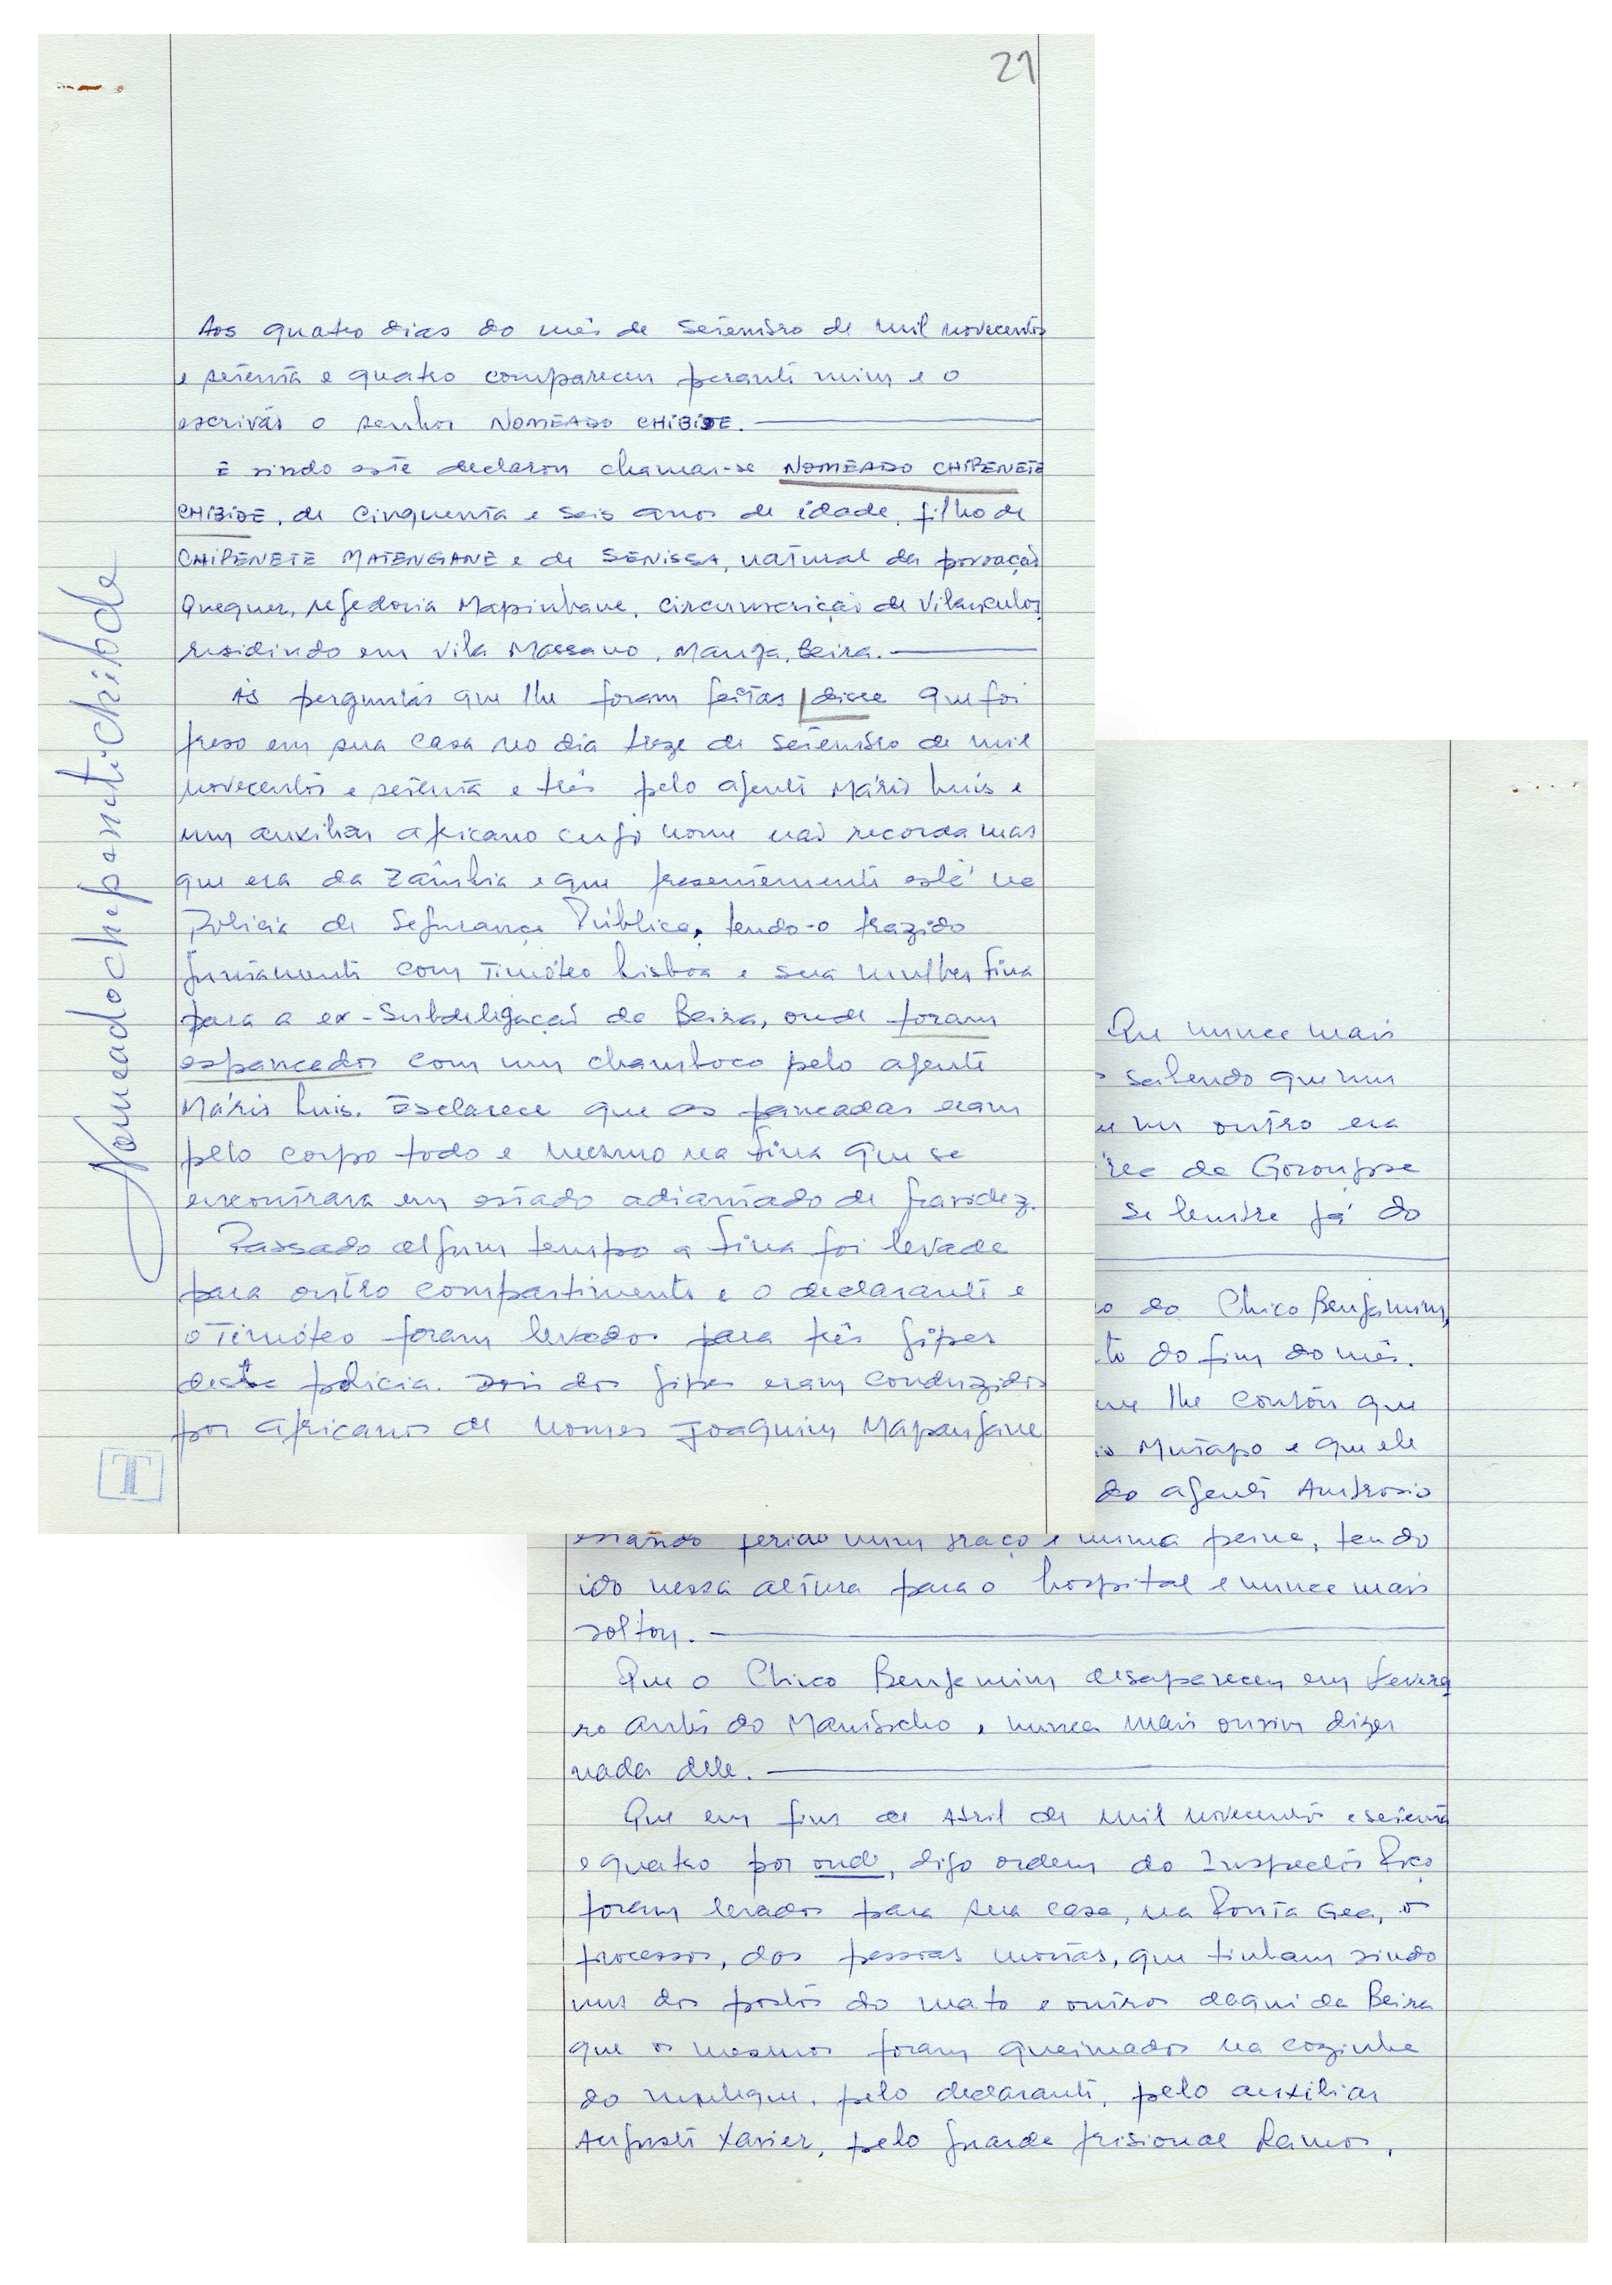 21
Aos quatro dias do mês de Setembro de mil novecentos
e setenta e quatro compareceu perante mim e o
escrivão o senhor NOMEADO CHIBIDE.
E sindo este declarou chamar-se NOMEADO CHIPENETE
CHIBIDE, de Cinquenta e seis anos de idade, filho de
CHIPENETE MATENGANE e de SENISSA, natural da povoação
Quequer, regedoria Mapinhane, Circunscrição de Vilanculos,
residindo em Vila Massano, Manga, Beira.
Às perguntas que lhe foram feitas disse que foi
preso em sua casa no dia treze de Setembro de mil
novecentos e setenta e três pelo agente Mário Luis e
um auxiliar africano cujo nome não recorda mas
que era da Zâmbia e que presentemente está na
Polícia de Segurança Pública, tendo-o trazido
juntamente com Timóteo Lisboa e sua mulher Fina
para a ex-Subdelegação da Beira, onde foram
espancados com um chamboco pelo agente
Mário Luis. Esclarece que as pancadas eram
pelo corpo todo e mesmo na Fina que se
encontrava em estado adiantado de gravidez.
Passado algum tempo a Fina foi levada
para outro compartimento e o declarante e
o Timóteo foram levados para três jipes
desta polícia. Dois dos jipes eram conduzidos
por africanos de nomes Joaquim Mapanjane
Nomeadochepenetichibde
T
Que nunca mais
sabendo que um
um outro era
da Gorongosa
se lembre já do
do Chico Benjamim,
do fim do mês.
lhe contou que
Mutapo e que ele
do agente Ambrosio
estando ferido num braço e numa perna, tendo
ido nessa altura para o hospital e nunca mais
voltou.
Que o Chico Benjamim desapareceu em Feverei
ro antes do Manissecho, nunca mais ouviu dizer
nada dele.
Que em fins de Abril de mil novecentos e setenta
e quatro por onde, digo ordem do Inspector
foram levados para sua casa, na Ponta Gea, os
processos, dos pessoas mortas, que tinham vindo
uns dos postos do mato e outros daqui da Beira
que os mesmos foram queimados na cozinha
do mesmo, pelo declarante, pelo auxiliar
Augusto Xavier, pelo guarda prisional Ramos,